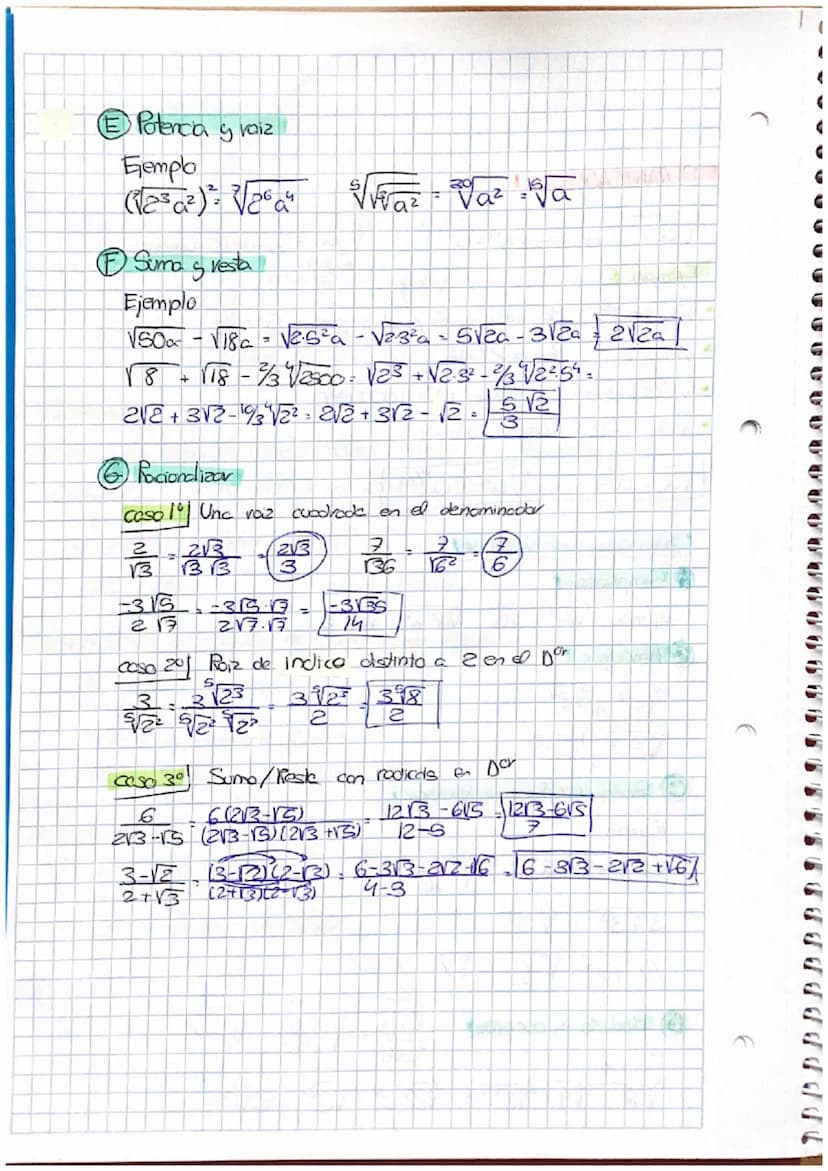 Ⓔ Potencia y raiz
Ejemplo
(⁷√2³a²)² = ⁷√2⁶a⁴   ⁵√√³√a² = ³⁰√a² = ¹⁵√a
Ⓕ Suma y resta
Ejemplo
√50a - √18a = √2·5²a - √2·3²a = 5√2a - 3√2a = 2√2a
√8 + √18 - 2/3 ⁴√2500 = √2³ + √2·3² - 2/3 ⁴√2²·5⁴ =
2√2 + 3√2 - 10/3 ⁴√2² = 2√2 + 3√2 - √2 = 5√2/3
Ⓖ Racionalizar
caso 1º| Una raiz cuadrada en el denominador
2/√3 = 2√3/√3 √3 = 2√3/3   7/√36 = 7/√6² = 7/6
-3√5/2√7 = -3√5·√7/2√7·√7 = -3√35/14
caso 2º| Raiz de indice distinto a 2 en el Dor
3/⁵√2² = 3 ⁵√2³/⁵√2² ⁵√2³ = 3 ⁵√2³/2 = 3 ⁵√8/2
caso 3º| Suma/Resta con radicals en Dor
6/2√3-√5 = 6(2√3-√5)/(2√3-√5)(2√3+√5) = 12√3-6√5/12-5 = 12√3-6√5/7
3-√2/2+√3 = (3-√2)(2-√3)/(2+√3)(2-√3) = 6-3√3-2√2+√6/4-3 = 6-3√3-2√2+√6